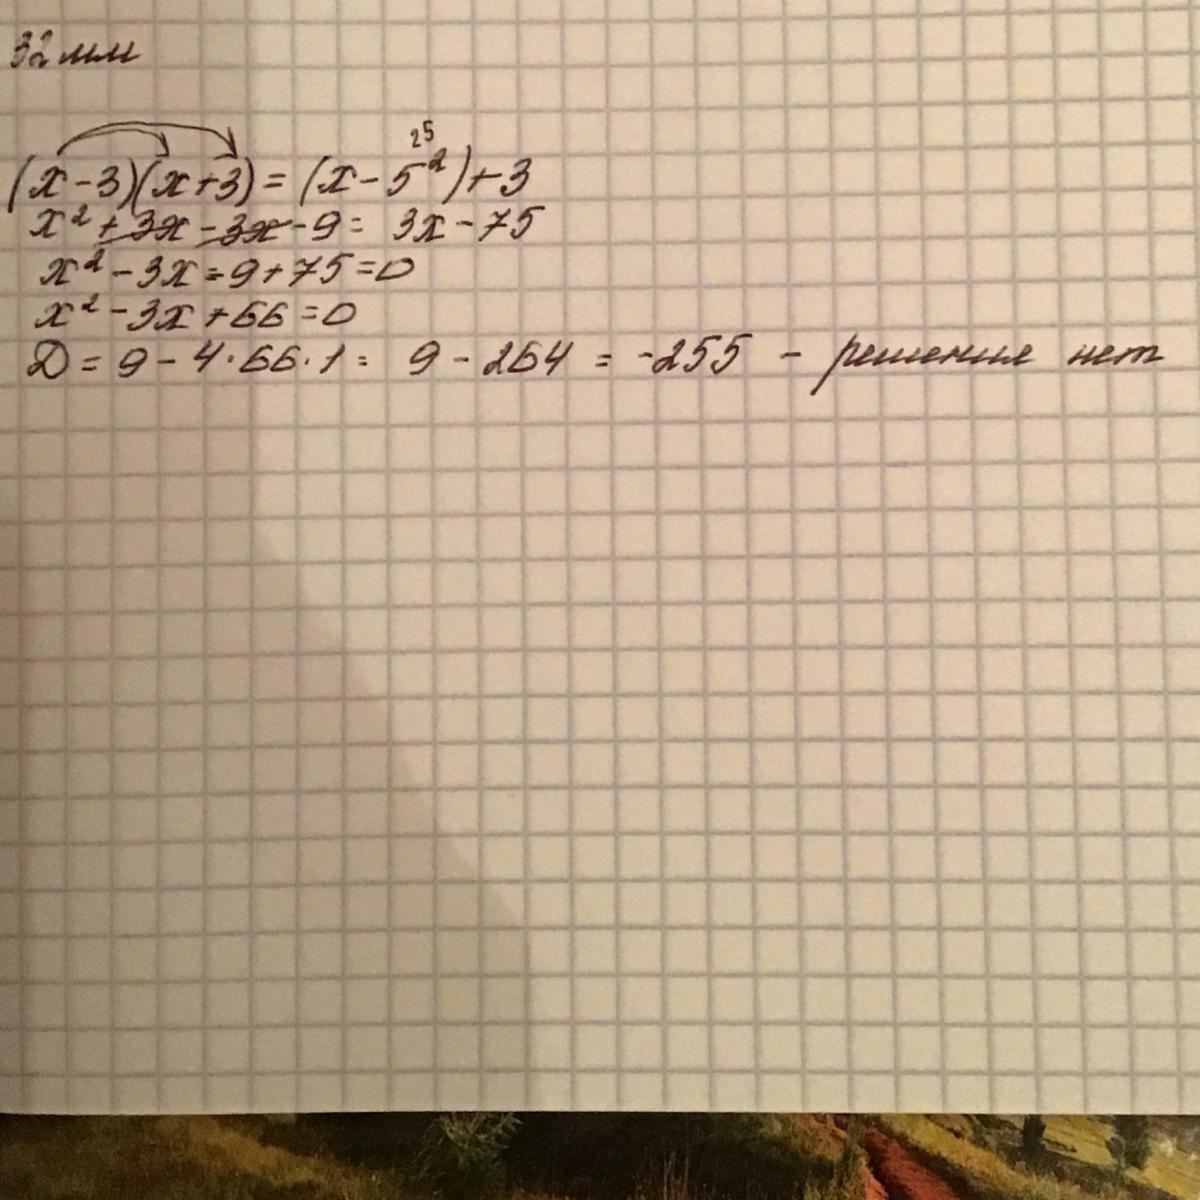 32 мм
25
(x-3)(x+3) = (x-5²)+3
x²+3x-3x-9= 3x-75
x²-3x-9+75=0
x²-3x+66=0
D=9-4·66·1= 9-264 = -255 - решение нет